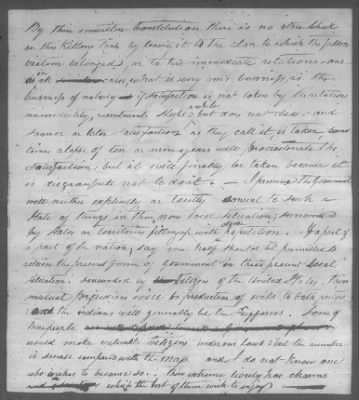 By their unwritten Constitution there is no other check
on this Killing Took by leaving it to the clan to which the person
victim belonged, or to his immediate relations - and
as in cases, what is every one's business, is the
business of nobody - if satisfaction is not taken by the relations
immediately, resentment sleeps awhile but does not die - and
sooner or later satisfaction as they call it, is taken some
times a lapse of ten or more years will procrastinate the
satisfaction; but it will finally be taken because it
is disgraceful not to do it. - I presume the Government
will neither explicitly or tacitly consent to such a
State of things in their now local situation; surrounded
by States or territories filling up with population. If a part of
a part of the nation, say one half should be permitted to
retain the present form of government in their present local
situation, surrounded by citizens of the United States, their
mutual prejudices would be productive of evils to both parties
and the indians will generally be the sufferers. Some of
these people
would make valuable Citizens under our Laws: but the number
is small compared with the mass and I do not know one
who wishes to become so. Their extreme liberty has charms
which the best of them wish to enjoy